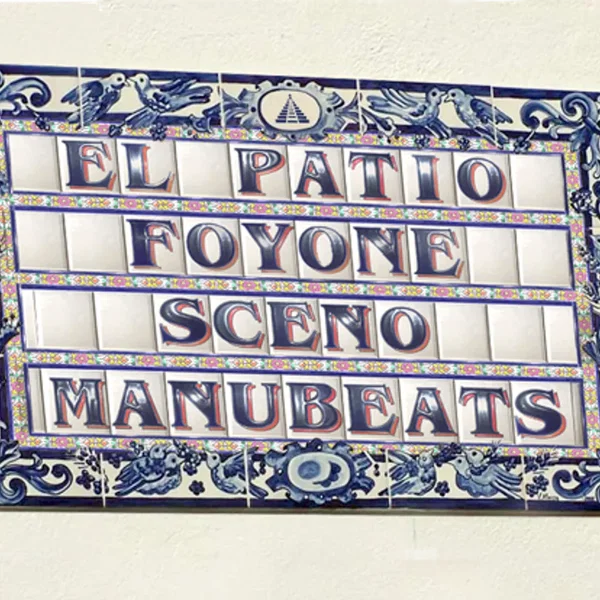 EL PATIO
FOYONE
SCENO
MANUBEATS